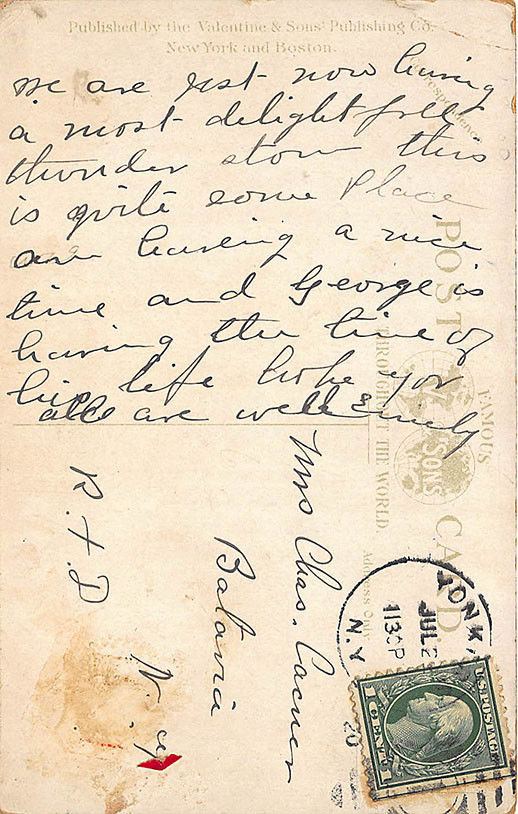 Published by the Valentine & Sons' Publishing Co.
New York and Boston.
Correspondence
we are just now having
a most delightfull
thunder storm this
is quite some place
are having a nice
time and George is
having the time of
his life hope you
all are well &
POST CARD
FAMOUS
THROUGHOUT THE WORLD
SONS
Address Only
Mrs Chas.
Batavia
R.F.D
N.Y
YONK
JUL 2
1130P
N.Y.
20
U.S. POSTAGE
1 CENT 1